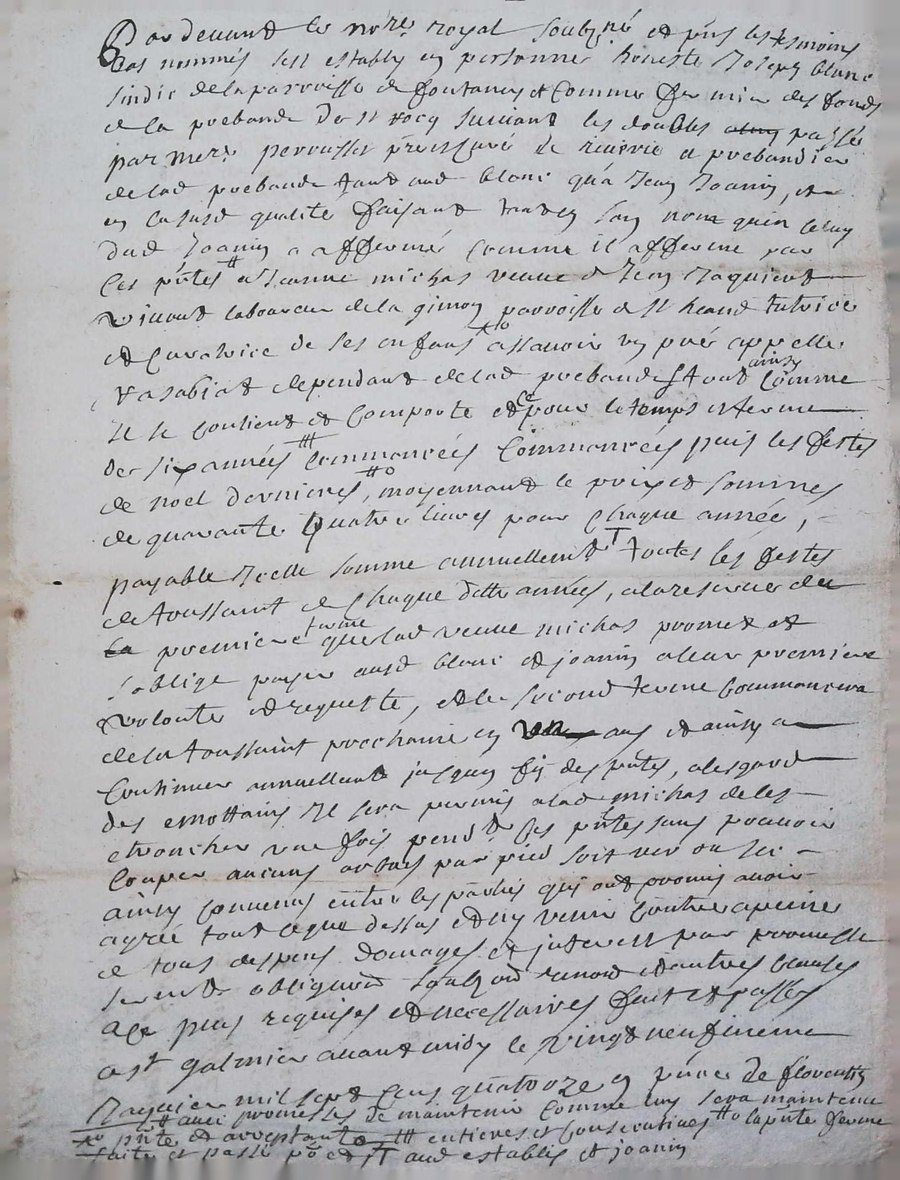 Pardevant le no.re royal soubz.né et p.ns les tesmoins
bas nommés sest estably en personne honeste Joseph blanc
sindic de la parroisse de fontanes et comme fermier des fonds
de la prebande de st rocq suivant les doubles passés
par mere perrusset prebandier
de lad prebande tant aud blanc qu'a Jean Joanin, et
en la susd qualité faisant tant en son nom qu'en celuy
dud Joanin a affermé comme il afferme par
ces p.ntes # a Jeanne michas veuve de Jean Jaquient
vivant laboureur de la gimon parroisse de st heand tutrice
et curatrice de ses enfans #o assavoir un pré appellé
vasabiat dependant de lad prebande tout ainsy comme
il se contient et comporte et ce pour le temps et ferme
de six années #| commancées puis les festes
de noel dernieres, #o moyennant le prix et somme
de quarante quatre livres pour chaque année,
payable icelle somme annuellement T toutes les festes
de toussaint de chaque ditte années, a la reserve de
la premiere ferme que lad veuve michas promet et
s'oblige payer aud blanc et joanin a leur premiere
volonté et requeste, et le second terme commancera
de la toussaint prochaine en un an et ainsy a
continuer annuellement jusqu'en fin des p.ntes, a lesgard
des emottains il sera permis a lad michas de les
etroncher une fois pend.t ces p.ntes sans pouvoir
couper aucuns arbres par pied soit ver ou sec
ainsy convenu entre les parties qui ont promis avoir
agréé tout ce que dessus et n'y venir contre a peine
de tous despens domages et interest par promesse
serment obligeant soubz.on renon.on et autres clauses
a ce plus requises et necessaires fait et passé
a st galmier avant midy le vingt neufvieme
Janvier mil sept cens quatorze en p.nce de florentin
# avec promesses de maintenir comme sera maintenue
#o p.nte et acceptante #| entieres et consecutives #o la p.nte ferme
faite et passé T aud establis et joanin